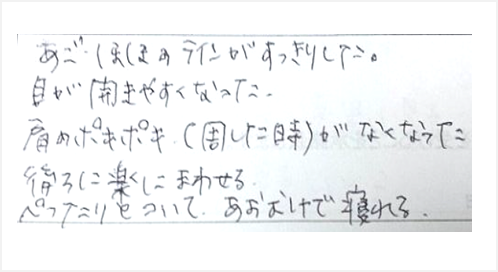 あご・ほほのラインがすっきりした。
目が開きやすくなった.
肩のポキポキ(回した時)がなくなった
後ろに楽にまわせる.
ぺったりとついて.あおむけで寝れる.